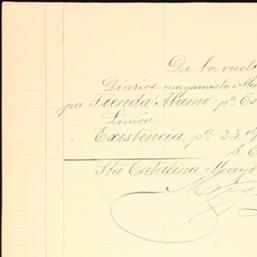 De la vuelt
Diarios maquinista é
por Tienda Alamo, pa. Es
Limón
Existencia pa. 23
S. E
Sta Catalina Mayo